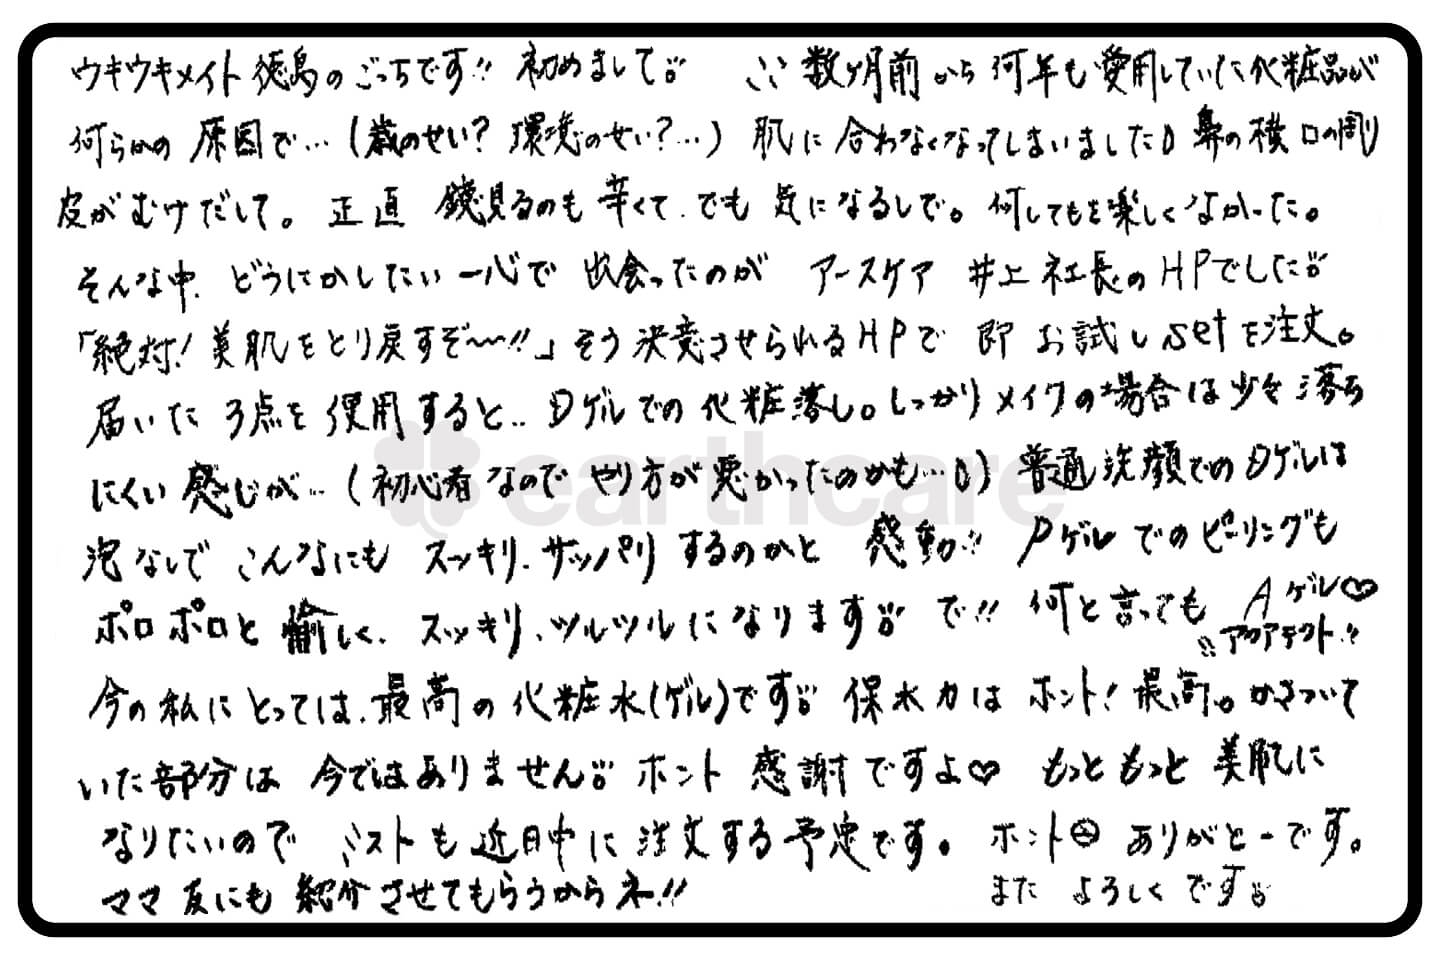 ウキウキメイト徳島のごっちです!! 初めまして ここ数ヶ月前から何年も愛用していた化粧品が
何らかの原因で…(歳のせい?環境のせい?…)肌に合わなくなってしまいました 鼻の横 口の周り
皮がむけだして。正直 鏡見るのも辛くて、でも気になるしで。何しても楽しくなかった。
そんな中、どうにかしたい一心で出会ったのがアースケア 井上社長のHPでした
「絶対!美肌をとり戻すぞ〜!!」そう決意させられるHPで即お試しsetを注文。
届いた3点を使用すると.. Dゲルでの化粧落し。しっかりメイクの場合は少々落ち
にくい感じが…(初心者なのでやり方が悪かったのかも…)普通洗顔でのDゲルは
earthcare
泡なしでこんなにもスッキリ、サッパリするのかと感動!! Pゲルでのピーリングも
ポロポロと愉しく、スッキリ、ツルツルになります で!! 何と言ってもAゲル♡
アクアテクト!!
今の私にとっては、最高の化粧水(ゲル)です 保水力はホント!最高。かさついて
いた部分は今ではありません ホント感謝ですよ♡ もっともっと美肌に
なりたいのでミストも近日中に注文する予定です。ホント ありがとーです。
ママ友にも紹介させてもらうからネ!! また よろしくです